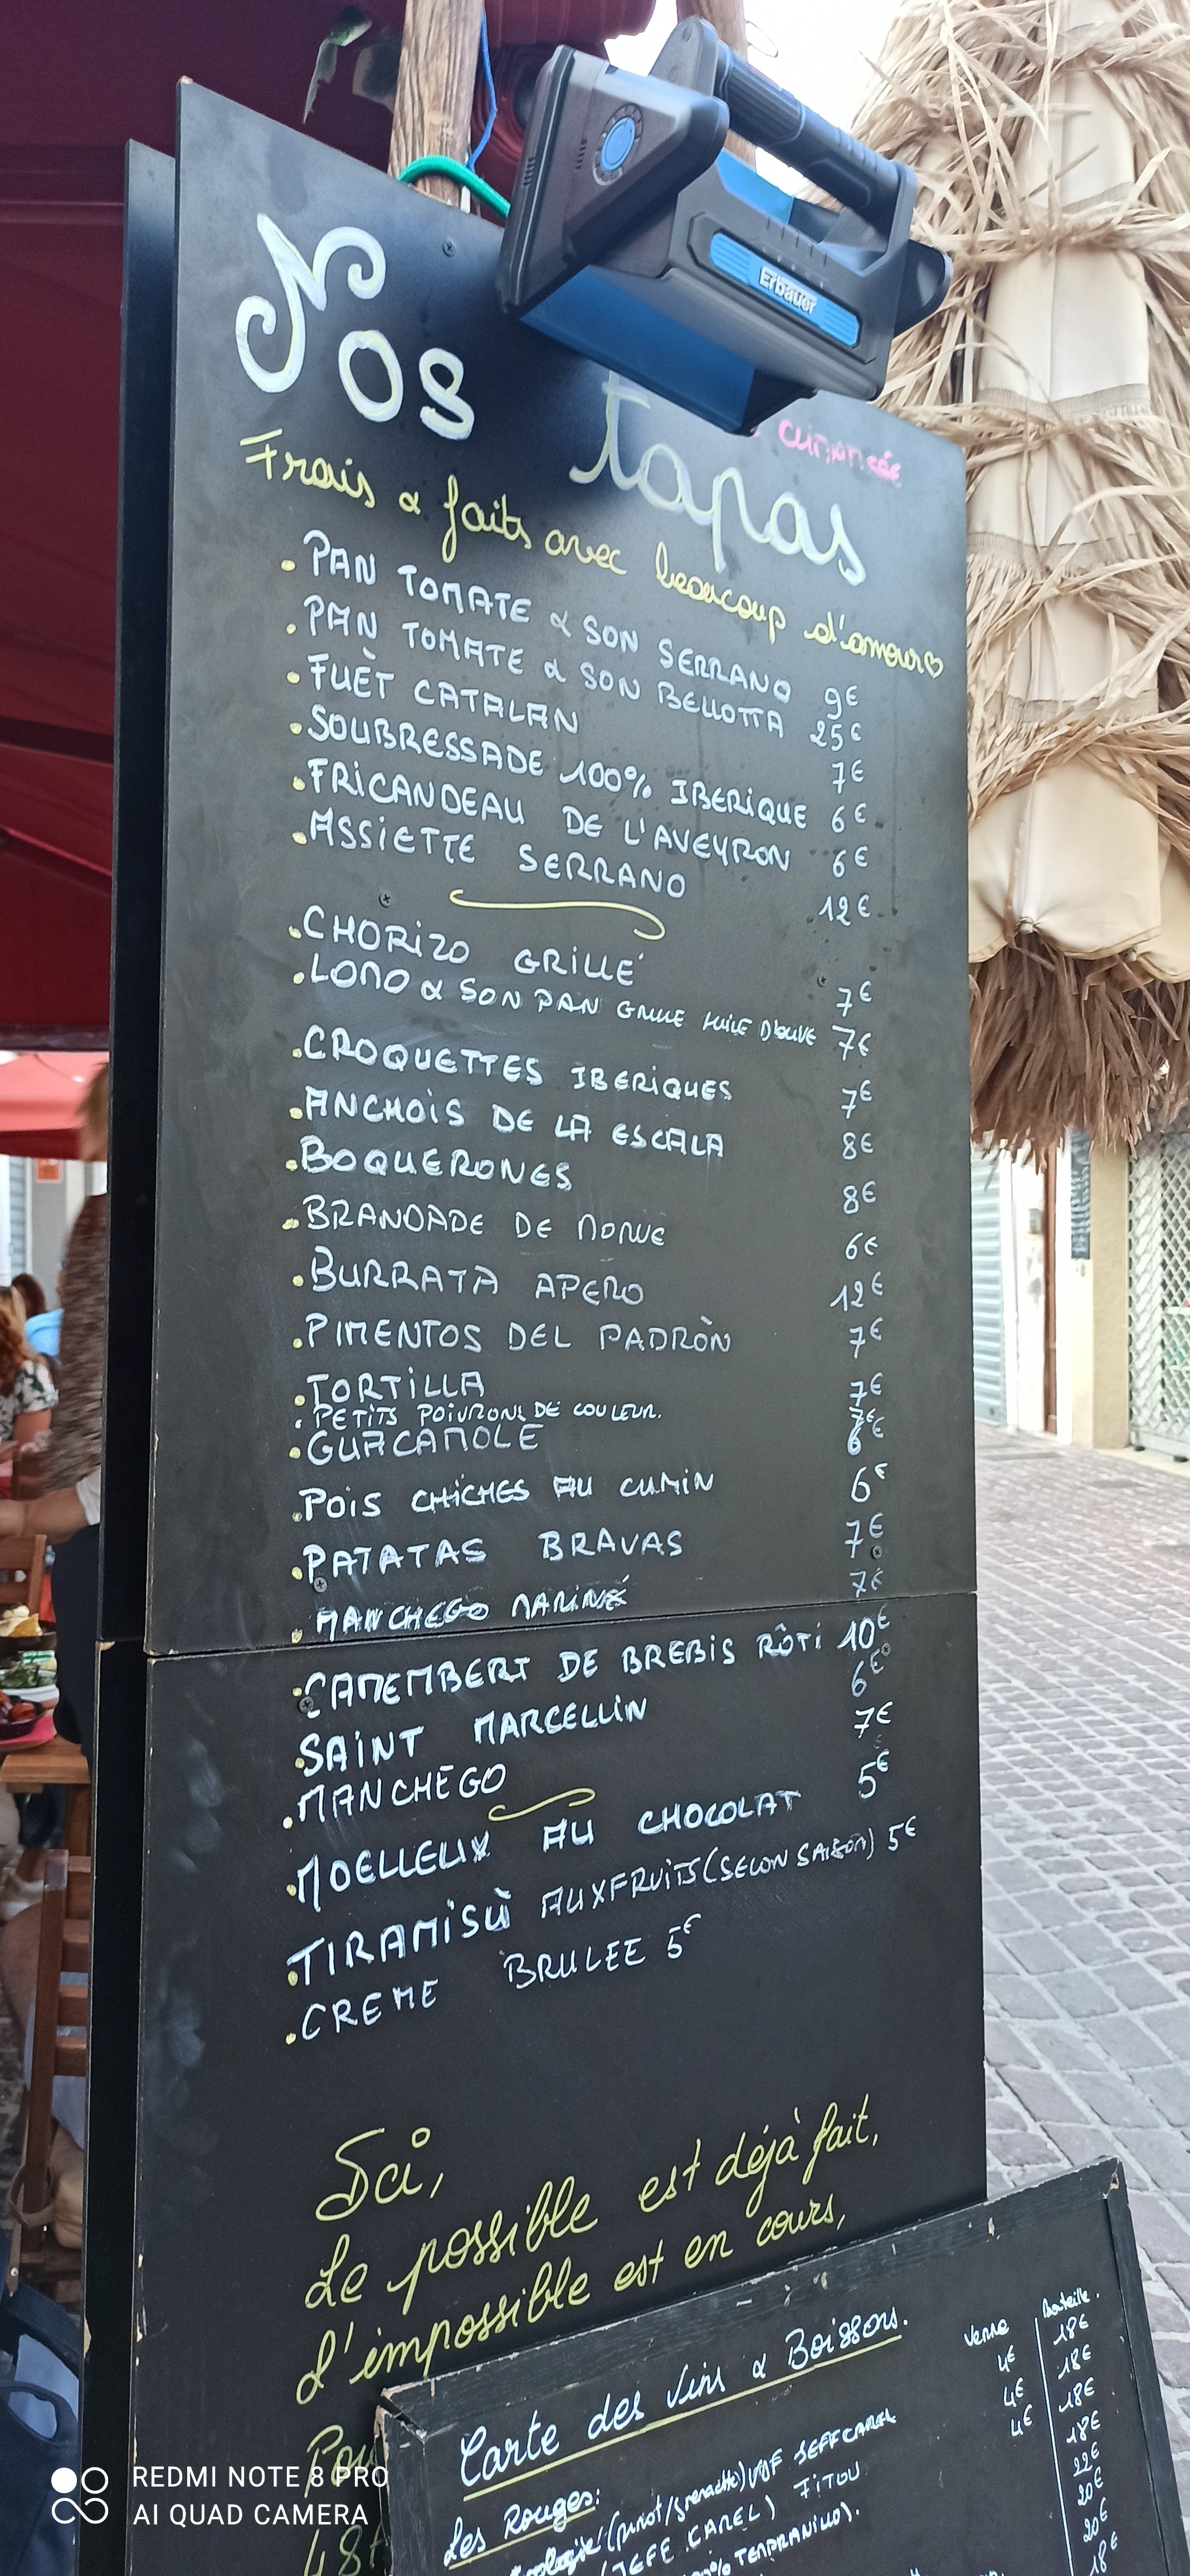 Erbauer
Nos tapas
Frais & faits avec beaucoup d'amour♡
. PAN TOMATE & SON SERRANO 9€
. PAN TOMATE & SON BELLOTTA 25€
. FUÈT CATALAN 7€
. SOUBRESSADE 100% IBERIQUE 6€
. FRICANDEAU DE L'AVEYRON 6€
. ASSIETTE SERRANO 12€
. CHORIZO GRILLÉ 7€
. LOMO & SON PAN GRILLE HUILE D'OLIVE 7€
. CROQUETTES IBERIQUES 7€
. ANCHOIS DE LA ESCALA 8€
. BOQUERONES 8€
. BRANDADE DE MORUE 6€
. BURRATA APERO 12€
. PIMENTOS DEL PADRÒN 7€
. TORTILLA 7€
. PETITS POIVRONS DE COULEUR. 7€
. GUACAMOLE 6€
. POIS CHICHES AU CUMIN 6€
. PATATAS BRAVAS 7€
. MANCHEGO MARINÉ 7€
. CAMEMBERT DE BREBIS RÔTI 10€
. SAINT MARCELLIN 6€
. MANCHEGO 7€
. MOELLEUX AU CHOCOLAT 5€
. TIRAMISÙ AUX FRUITS (SELON SAISON) 5€
. CREME BRULEE 5€
Ici,
Le possible est déjà fait,
L'impossible est en cours,
Carte des vins & Boissons.
Verre Bouteille.
Les Rouges:
4€ 18€
4€ 18€
4€ 18€
18€
22€
20€
20€
18€
(pinot/grenache) VDF JEFF CAREL
(JEFF CAREL) FITOU
TEMPRANILLO).
REDMI NOTE 8 PRO
AI QUAD CAMERA